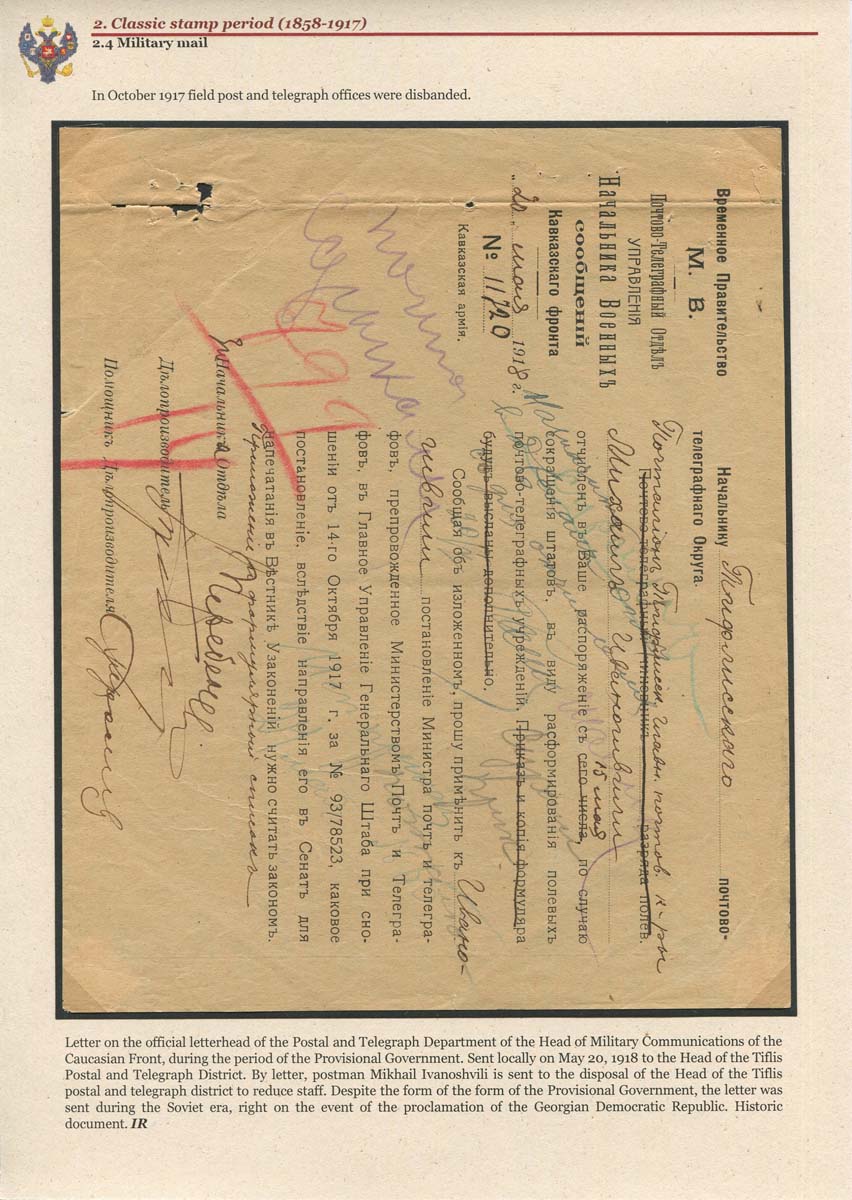 2. Classic stamp period (1858-1917)
2.4 Military mail
In October 1917 field post and telegraph offices were disbanded.
Временное Правительство
М. В.
Почтово-Телеграфный Отдѣлъ
УПРАВЛЕНІЯ
Начальника Военныхъ
сообщений
Кавказскаго фронта
„20„ мая 1918 г.
№ 11720
Кавказская армія.
Начальнику Тифлисскаго почтово-
телеграфнаго Округа.
Почталіонъ Тифлисск. Главн. почтов. к-ры
Почтово-телеграфный чиновникъ разряда полев.
Михаилъ Иваношвили
отчисленъ въ Ваше распоряженіе съ сего числа, 15 мая по случаю
сокращенія штатовъ, въ виду расформированія полевыхъ
почтово-телеграфныхъ учрежденій. Приказъ и копія формуляра
будутъ высланы дополнительно.
Сообщая объ изложенномъ, прошу примѣнить къ Ивано-
швили постановленіе Министра почтъ и телегра-
фовъ, препровожденное Министерствомъ Почтъ и Телегра-
фовъ, въ Главное Управленіе Генеральнаго Штаба при сно-
шеніи отъ 14-го Октября 1917 г. за № 93/78523, каковое
постановленіе, вслѣдствіе направленія его въ Сенатъ для
напечатанія въ Вѣстникѣ Узаконеній нужно считать закономъ.
Приложеніе: формулярный списокъ
Начальника Отдѣла
Дѣлопроизводитель
Помощникъ Дѣлопроизводителя
Letter on the official letterhead of the Postal and Telegraph Department of the Head of Military Communications of the
Caucasian Front, during the period of the Provisional Government. Sent locally on May 20, 1918 to the Head of the Tiflis
Postal and Telegraph District. By letter, postman Mikhail Ivanoshvili is sent to the disposal of the Head of the Tiflis
postal and telegraph district to reduce staff. Despite the form of the form of the Provisional Government, the letter was
sent during the Soviet era, right on the event of the proclamation of the Georgian Democratic Republic. Historic
document. IR